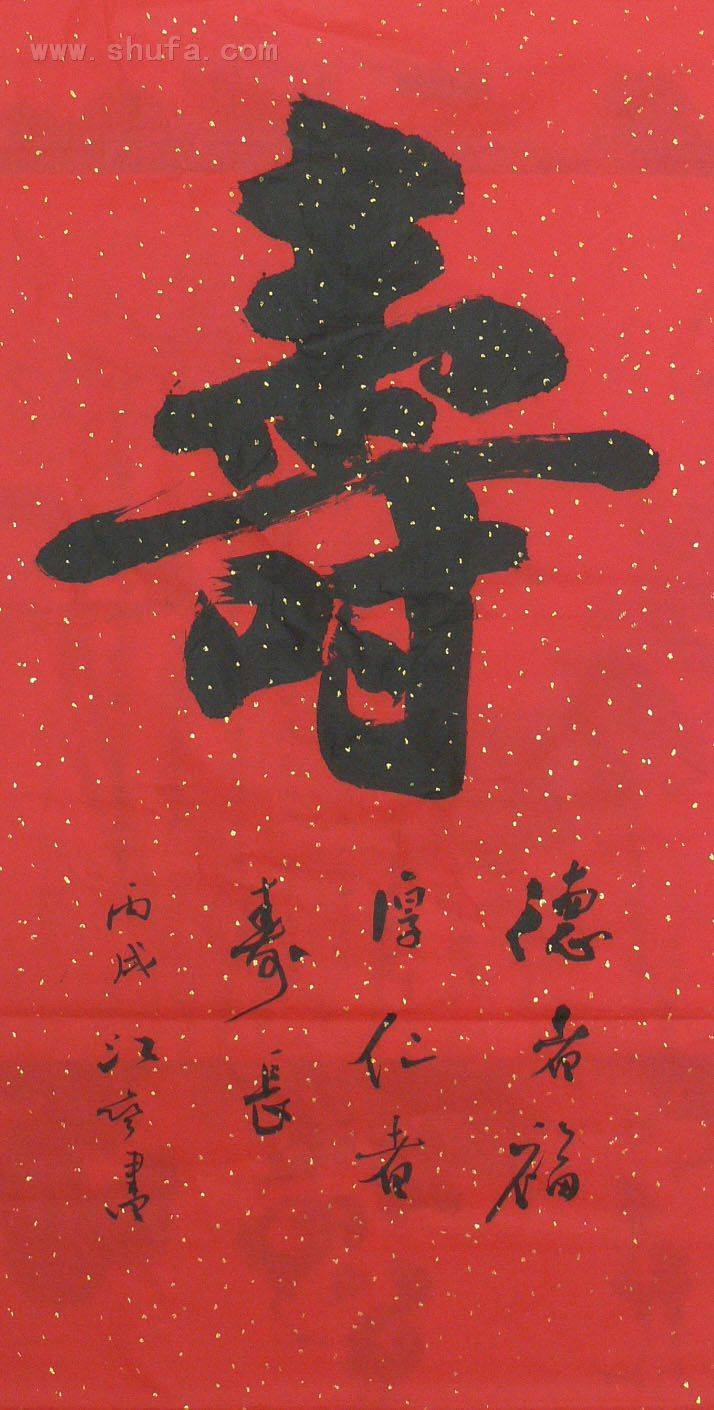 www.shufa.com
壽
德者福
厚仁者
壽長
丙戌 江 書